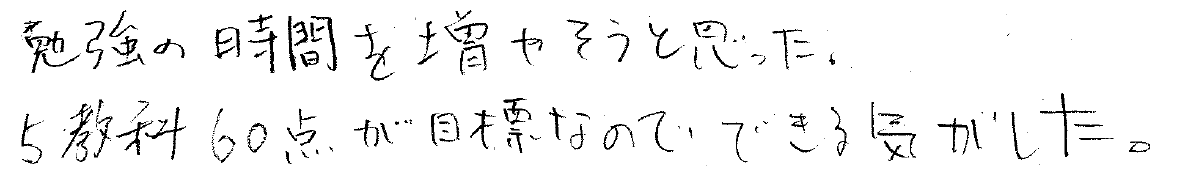 勉強の時間を増やそうと思った。
5教科60点が目標なので、できる気がした。